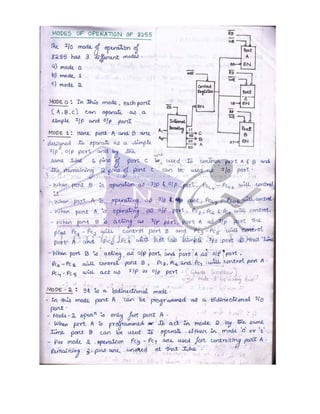 MODES OF OPERATION OF 8255
The I/O mode of operation of
8255 has 3 different modes.
a) mode 0
b) mode 1
c) mode 2
MODE 0: In this mode, each port
(A, B, C) can operate as a
simple I/P and O/P port
MODE 1: here port A and B are
designed to operate as a simple
I/P, O/P port and by the
same time 6 pins of port C is used to control port A & B and
the remaining 2 pins of port C can be used as I/O port
- When port B is operating as I/P & O/P, PC0 - PC2 will control
it
- When port A is operating as I/P port, will control
- When port A is operating as O/P, PC3, PC6 & PC7 will control.
- When port B is acting as I/P port, port the
pins PC0 - PC2 will control port B and PC3 - PC5 will control
port A and (PC6, PC7) will act as simple I/O port at that time
- When port B is acting as O/P port and port A as O/P port,
PC0 - PC2 will control port B, PC3, PC6 and PC7 will control port A
PC4 - PC5 will act as I/P or O/P port
MODE-2: It is a bidirectional mode
- In this mode port A can be programmed as a bidirectional I/O
port.
- Mode-2 operation is only for port A.
- When port A is programmed to act in mode 2 by the same
time port B can be used to operate either in mode '0' or '1'
- For mode 2 operation PC3 - PC7 are used for controlling port A.
Remaining 3-pins are unused at that time
RD
WR
Port
A
EN
Control
Register
EN
CS
Internal
Decoding
A1
A0
A
B
C
CR
RD
WR
Port
C
EN
RD
WR
Port
B
EN